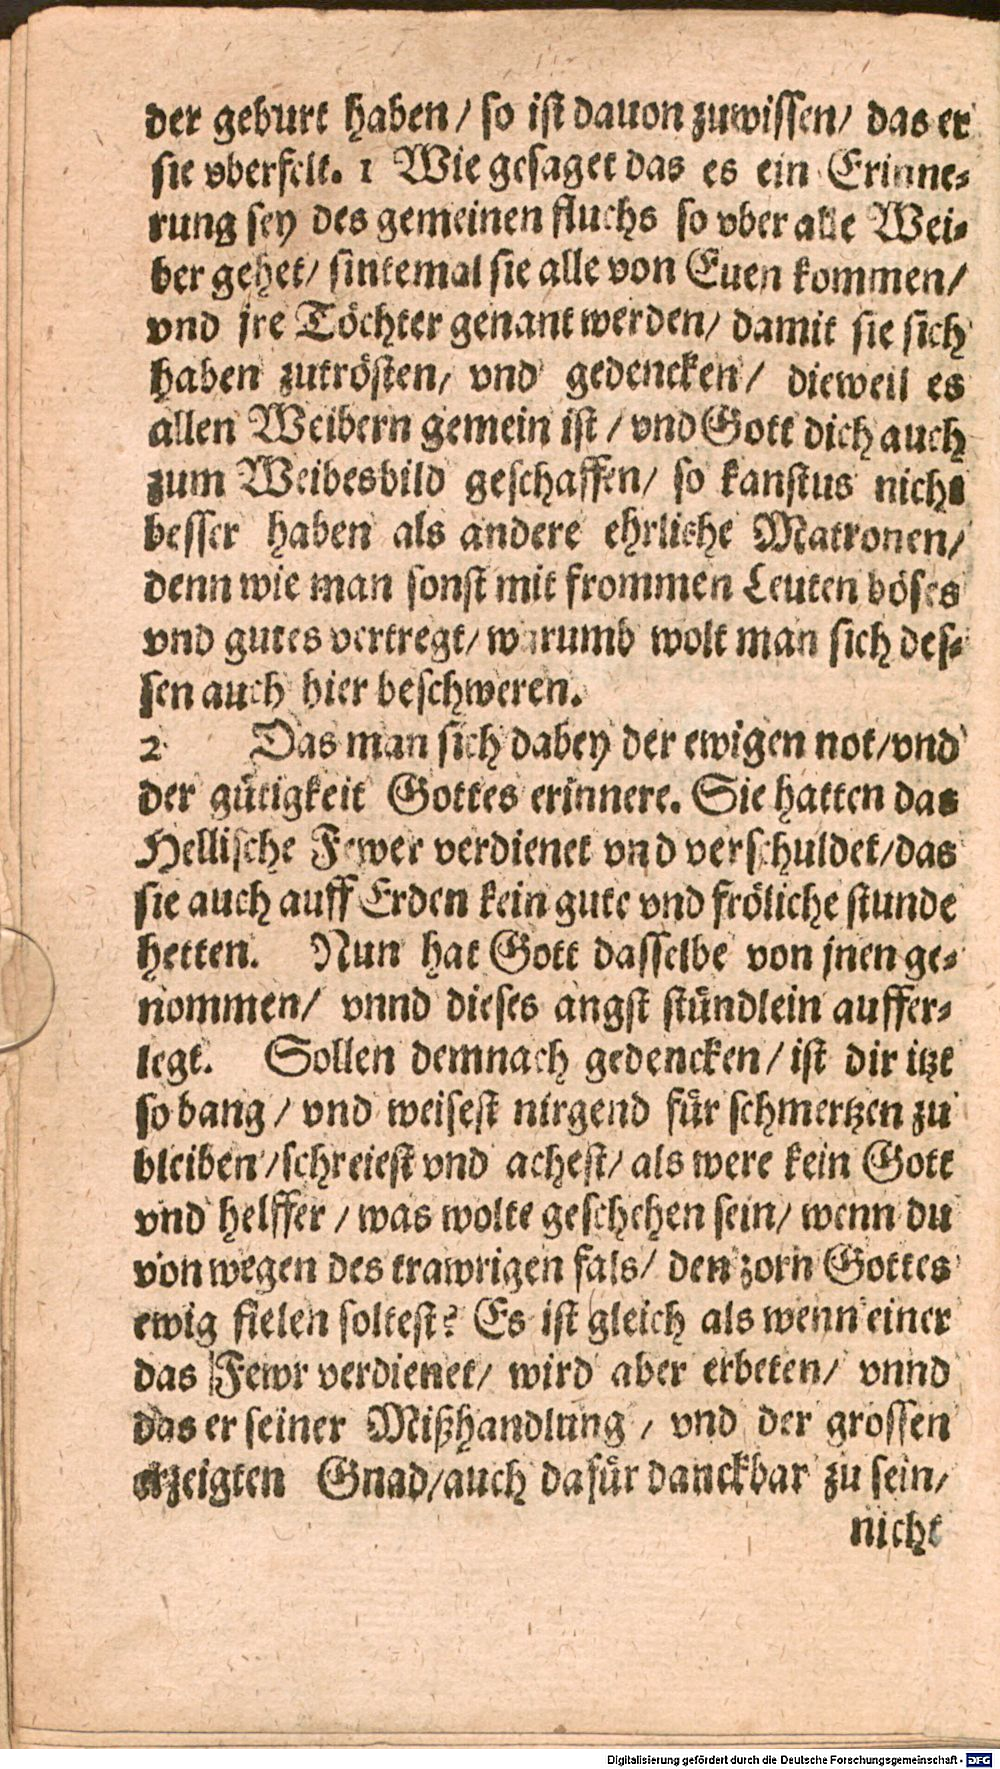 der geburt haben / so ist dauon zuwissen / das er
sie vberfelt. 1 Wie gesaget das es ein Erinne-
rung sey des gemeinen fluchs so vber alle Wei-
ber gehet / sintemal sie alle von Euen kommen /
vnd jre Töchter genant werden / damit sie sich
haben zutrösten / vnd gedencken / dieweil es
allen Weibern gemein ist / vnd Gott dich auch
zum Weibesbild geschaffen / so kanstus nicht
besser haben als andere ehrliche Matronen /
denn wie man sonst mit frommen Leuten böses
vnd gutes vertregt / warumb wolt man sich des-
sen auch hier beschweren.
2 Das man sich dabey der ewigen not / vnd
der gütigkeit Gottes erinnere. Sie hatten das
Hellische Fewer verdienet vnd verschuldet / das
sie auch auff Erden kein gute vnd fröliche stunde
hetten. Nun hat Gott dasselbe von jnen ge-
nommen / vnnd dieses angst stündlein auffer-
legt. Sollen demnach gedencken / ist dir itzt
so bang / vnd weisest nirgend für schmertzen zu
bleiben / schreiest vnd achest / als were kein Gott
vnd helffer / was wolte geschehen sein / wenn du
von wegen des trawrigen fals / den zorn Gottes
ewig fielen soltest? Es ist gleich als wenn einer
das Fewr verdienet / wird aber erbeten / vnnd
das er seiner Mißhandlung / vnd der grossen
erzeigten Gnad / auch dafür danckbar zu sein /
nicht
Digitalisierung gefördert durch die Deutsche Forschungsgemeinschaft - DFG